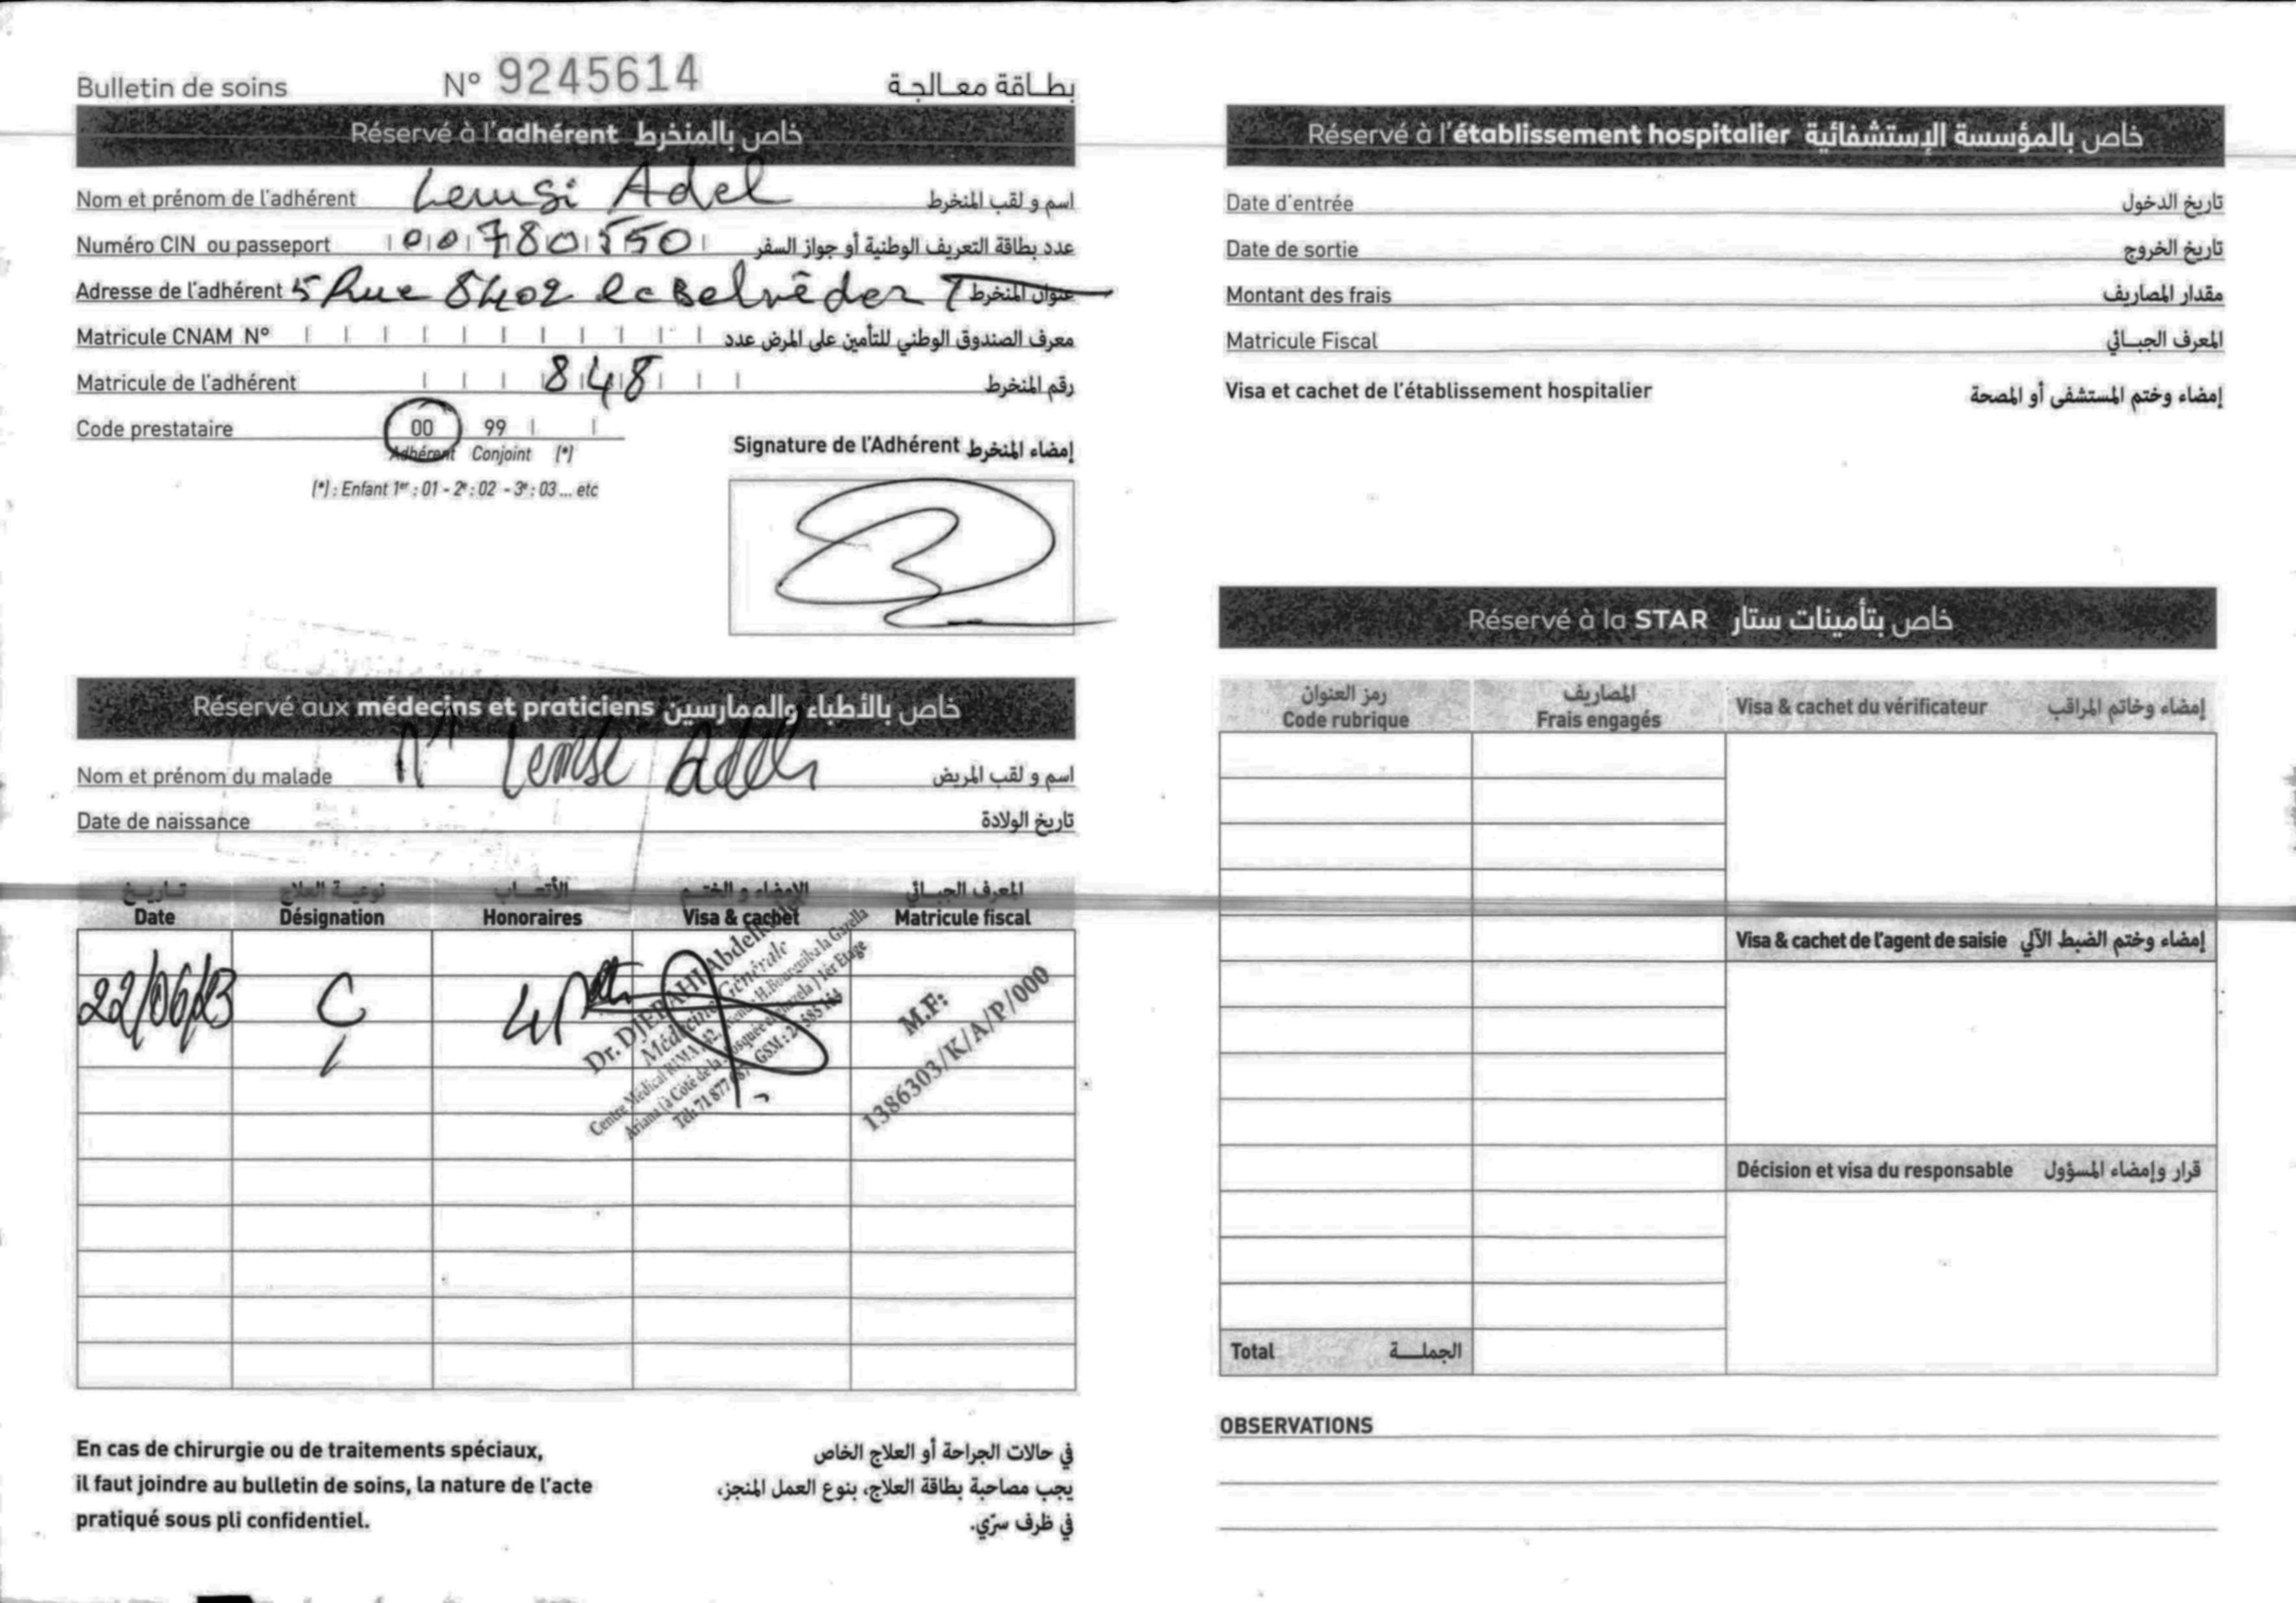 Bulletin de soins N° 9245614 بطاقة معالجة
Réservé à l'adhérent خاص بالمنخرط
Nom et prénom de l'adhérent Lemsi Adel اسم و لقب المنخرط
Numéro CIN ou passeport 00780550 عدد بطاقة التعريف الوطنية أو جواز السفر
Adresse de l'adhérent 5 Rue 8402 le Belvéder عنوان المنخرط
Matricule CNAM N° معرف الصندوق الوطني للتأمين على المرض عدد
Matricule de l'adhérent 848 رقم المنخرط
Code prestataire 00 99
Adhérent Conjoint (*)
(*) : Enfant 1er : 01 - 2e : 02 - 3e : 03 ... etc
Signature de l'Adhérent إمضاء المنخرط
Réservé aux médecins et praticiens خاص بالأطباء والممارسين
Nom et prénom du malade Mr Lemsi Adel اسم و لقب المريض
Date de naissance تاريخ الولادة
تاريخ نوعية العلاج الأتعاب الإمضاء و الختم المعرف الجبائي
Date Désignation Honoraires Visa & cachet Matricule fiscal
22/06/23 C
Dr. DJERAHI
Médecine Générale
Centre Médical
Ariana (à Côté de la Mosquée 1er Etage
Tél: 71 877 GSM:
M.F:
1386303/K/A/P/000
En cas de chirurgie ou de traitements spéciaux,
il faut joindre au bulletin de soins, la nature de l'acte
pratiqué sous pli confidentiel.
في حالات الجراحة أو العلاج الخاص
يجب مصاحبة بطاقة العلاج، بنوع العمل المنجز،
في ظرف سرّي.
Réservé à l'établissement hospitalier خاص بالمؤسسة الإستشفائية
Date d'entrée تاريخ الدخول
Date de sortie تاريخ الخروج
Montant des frais مقدار المصاريف
Matricule Fiscal المعرف الجبائي
Visa et cachet de l'établissement hospitalier إمضاء وختم المستشفى أو المصحة
Réservé à la STAR خاص بتأمينات ستار
رمز العنوان المصاريف
Code rubrique Frais engagés Visa & cachet du vérificateur إمضاء وخاتم المراقب
Visa & cachet de l'agent de saisie إمضاء وختم الضبط الآلي
Décision et visa du responsable قرار وإمضاء المسؤول
Total الجملة
OBSERVATIONS